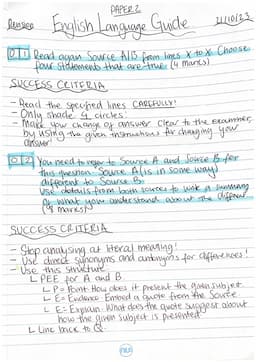 PAPER 2
Revision English Language Guide 21/10/23
01 Read again Source A/B from lines X to X. Choose
four statements that are true (4 marks)
SUCCESS CRITERIA
- Read the specified lines CAREFULLY!
- Only shade 4 circles!
- Make your change of answer clear to the examiner
by using the given instructions for changing your
answer
02 You need to refer to Source A and Source B for
this question. Source A (is in some way)
different to Source B.
Use details from both sources to write a summary
of what you understand about the different
(8 marks)
SUCCESS CRITERIA
- Stop analysing at literal meaning!
- Use direct synonyms and antonyms for differences!
- Use this structure
L PEE for A and B.
L P = Point: How does it present the given subject
L E = Evidence: Embed a quote from the source
L E = Explain: What does the quote suggest about
how the given subject is presented
L Link back to Q.